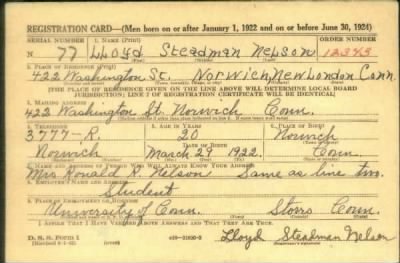 REGISTRATION CARD—(Men born on or after January 1, 1922 and on or before June 30, 1924)
SERIAL NUMBER 1. NAME (Print) ORDER NUMBER
N 77 LLoyd Steadman Nelson 12345
(First) (Middle) (Last)
2. PLACE OF RESIDENCE (Print)
422 Washington St. Norwich, New London Conn.
[THE PLACE OF RESIDENCE GIVEN ON THE LINE ABOVE WILL DETERMINE LOCAL BOARD
JURISDICTION; LINE 2 OF REGISTRATION CERTIFICATE WILL BE IDENTICAL]
3. MAILING ADDRESS
422 Washington St. Norwich Conn.
4. TELEPHONE 5. AGE IN YEARS 6. PLACE OF BIRTH
3777-R. 20 Norwich
DATE OF BIRTH
Norwich March 29 1922. Conn.
7. NAME AND ADDRESS OF PERSON WHO WILL ALWAYS KNOW YOUR ADDRESS
Mrs Ronald R. Nelson Same as line two.
8. EMPLOYER'S NAME AND ADDRESS
Student
9. PLACE OF EMPLOYMENT OR BUSINESS
University of Conn. Storrs Conn.
I AFFIRM THAT I HAVE VERIFIED ABOVE ANSWERS AND THAT THEY ARE TRUE.
D. S. S. Form 1
Lloyd Steadman Nelson